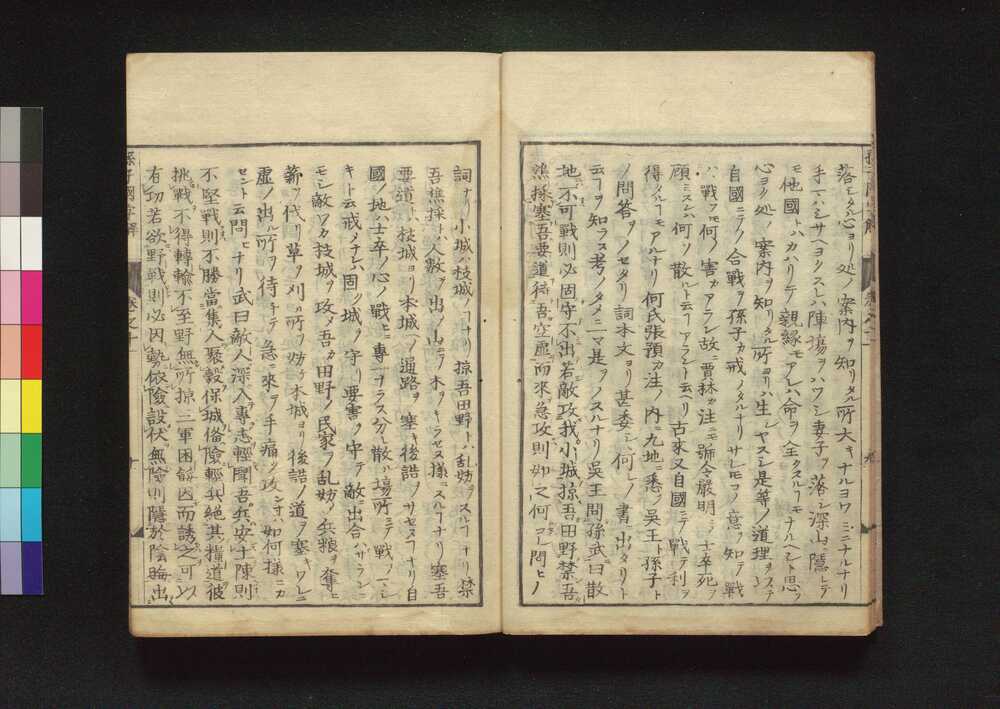 落シタル心ヨリ処ノ案内ヲ知リタル所大キナルヨワミニナルナリ
手一ハシサヘヨクスレハ陣場ヲハワシ妻子ヲ落シ深山ニ隠レテ
モ他國トハカハリテ親縁モアレハ命ヲ全クスルヿモナルヘシト思フ
心ヨリ処ノ案内ヲ知リタル所ヨリハ生シヤスシ是等ノ道理ヲステ
自國ニテノ合戰ヲ孫子カ戒メタルナリサレモコノ意ヲ知テ戰
ハ戰フモ何ノ害カアラン故ニ賈林カ注ニモ號令嚴明ニシテ士卒死ヲ
顧ミスンハ何ソ散ルト云ヿアラント云ヘリ古来又自國ニテ戰テ利ヲ
得タルヿモアルナリ何氏張預カ注ノ内ニ九地ニ悉ク吳王ト孫子ト
ノ問答ヲノセタリ詞本文ヨリ甚委シ何レノ書ニ出タリト
云ヿヲ知ラス考ノタメニ是ヲノスルナリ吳王問孫武曰散
地不可戰則必固守不出若敵攻我小城掠吾田野禁吾
樵採塞吾要道待吾空虛而來急攻則如之何コレ問ヒノ
詞ナリ小城ハ枝城ノヿナリ掠吾田野トハ乱妨ヲスルヿナリ禁
吾樵採トハ人數ヲ出シ山ノ木ヲキラセヌ様ニスルヿナリ塞吾
要道トハ枝城ヨリ本城ヘノ通路ヲ塞キ後詰ヲサセヌヿナリ自
國ノ地ハ士卒ノ心戰ニ專一ナラス分レ散ル場所ニテ戰フヘシ
キト云戒メナレハ固ク城ヲ守リ要害ヲ守テ敵ニ出合ハサランニ
モシ敵ワカ枝城ヲ攻メ吾カ田野ノ民家ヲ乱妨シ兵粮ヲ奪ヒ
薪ヲ伐リ草ヲ刈ル所ヲ妨ケ本城ヨリ後詰ノ道ヲ塞キワレニ
虛ノ出ル所ヲ待チテ急ニ來ヲ手痛ク攻ンヿハ如何様ニカ
セント云問ヒナリ武曰敵人深入專志輕闘吾兵安土陳則
不堅戰則不勝當集人聚穀保城俻險輕兵絕其糧道彼
挑戰不得轉輸不至野無所掠三軍困餒因而誘之可以
有功若欲野戰則必因勢依險設伏無險則隱於陰晦出